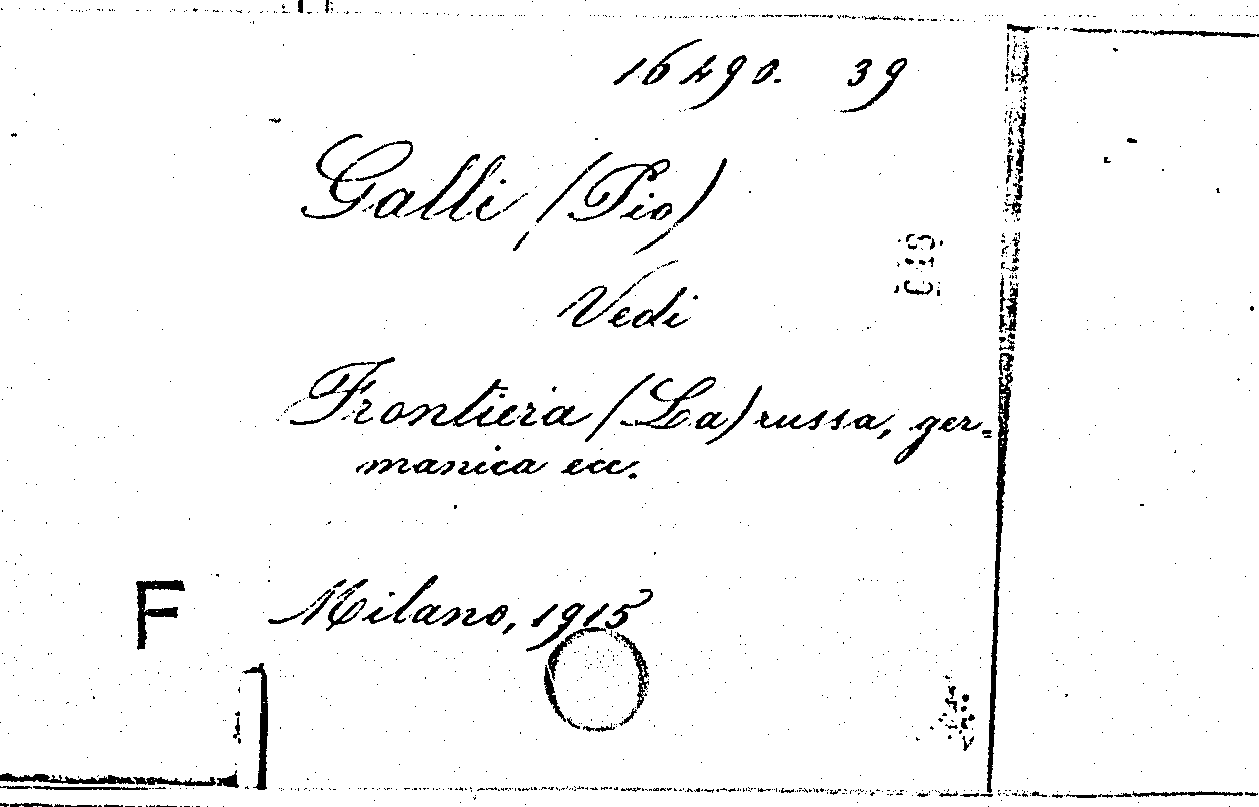 16290. 39
Galli (Pio)
Vedi
Frontiera (La) russa, ger-
manica ecc.
F
Milano, 1915